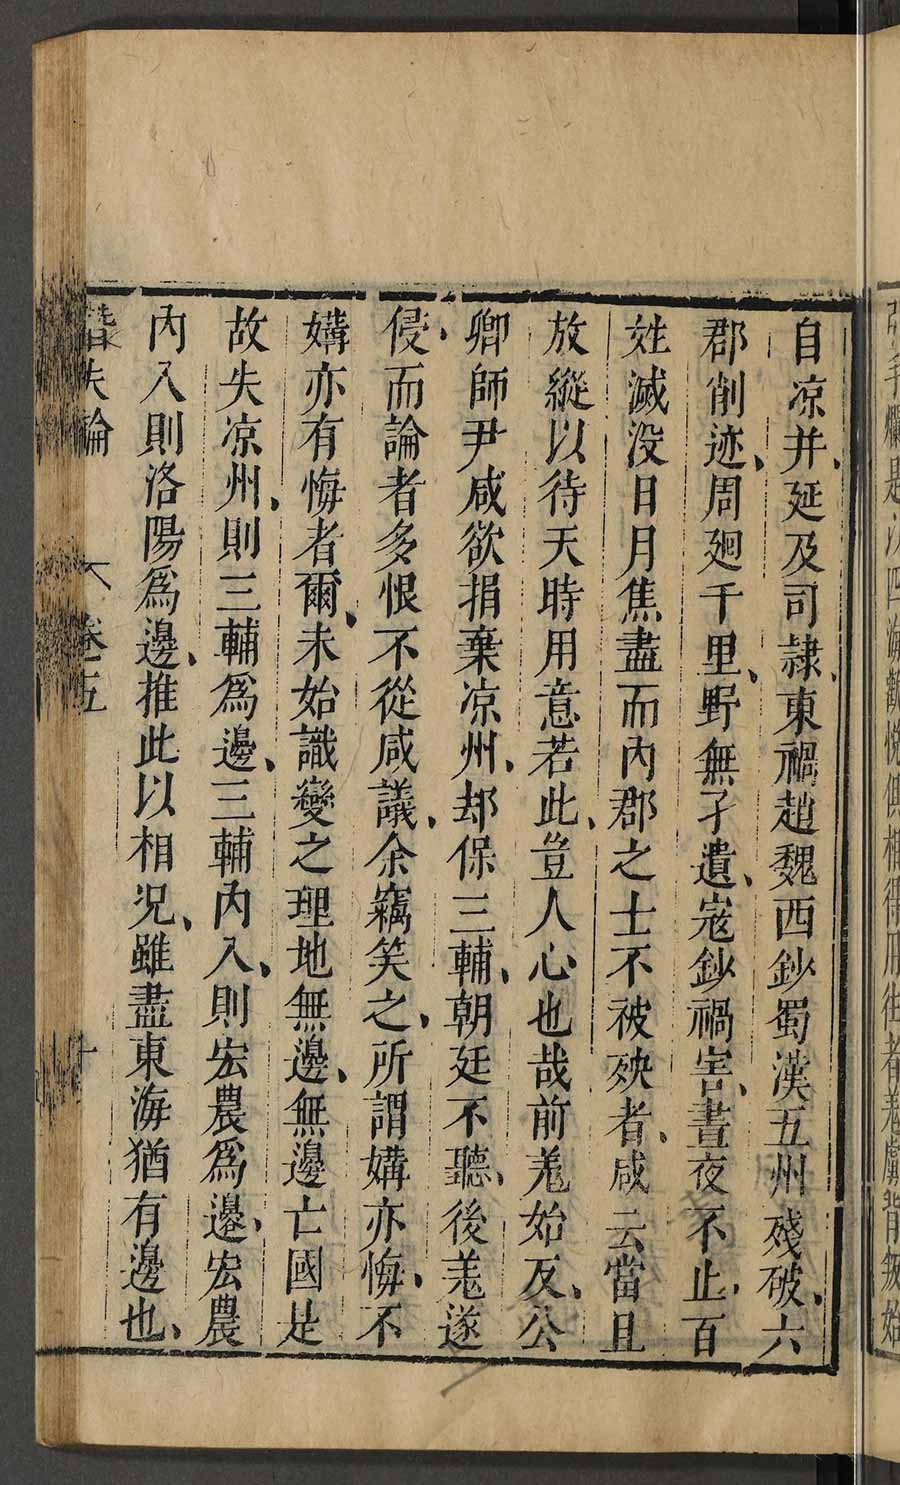 自凉并延及司隷東禍趙魏西鈔蜀漢五州殘破六
郡削迹周廻千里野無孑遺寇鈔禍害晝夜不止百
姓滅没日月焦盡而內郡之士不被殃者咸云當且
放縱以待天時用意若此豈人心也哉前羗始反公
卿師尹咸欲捐棄凉州却保三輔朝廷不聽後羗遂
侵而論者多恨不從咸議余竊笑之所謂媾亦悔不
媾亦有悔者爾未始識變之理地無邊無邊亡國是
故失凉州則三輔爲邊三輔內入則宏農爲邊宏農
內入則洛陽爲邊推此以相况雖盡東海猶有邊也
潛夫論 卷五 十